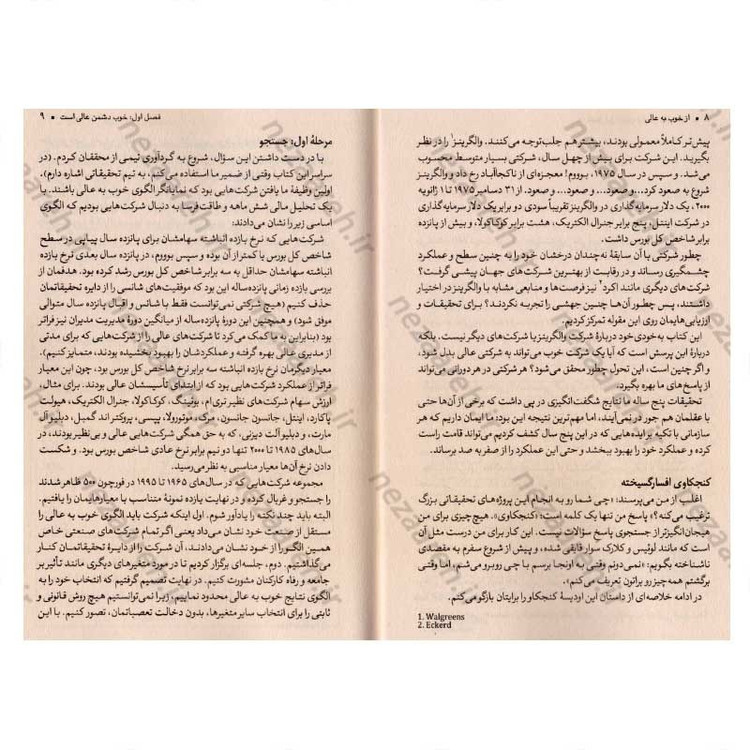 ۸ • از خوب به عالی
پیش‌تر کاملاً معمولی بودند، بیشتر هم جلب توجه می‌کنند. والگرینز¹ را در نظر
بگیرید. این شرکت برای بیش از چهل سال، شرکتی بسیار متوسط محسوب
می‌شد. و سپس در سال ۱۹۷۵، بوووم! معجزه‌ای از ناکجاآباد رخ داد و شرکت
شروع به صعود کرد... و صعود... و صعود... و صعود. از ۳۱ دسامبر ۱۹۷۵ تا ۱ ژانویه
۲۰۰۰، یک دلار سرمایه‌گذاری در والگرینز تقریباً سودی دو برابر یک دلار سرمایه‌گذاری
در شرکت اینتل، پنج برابر جنرال الکتریک، هشت برابر کوکاکولا، و بیش از پانزده
برابر شاخص کل بورس داشت.
چطور شرکتی با آن سابقهٔ نه‌چندان درخشان خود را به چنین سطح و عملکرد
چشمگیری رساند و در رقابت از بهترین شرکت‌های جهان پیشی گرفت؟
شرکت‌های دیگری مانند اکرد² نیز فرصت‌ها و منابعی مشابه با والگرینز در اختیار
داشتند، پس چطور آن‌ها چنین جهشی را تجربه نکردند؟ برای تحقیقات و
ارزیابی‌هایمان روی این مقوله تمرکز کردیم.
این کتاب به‌خودی‌خود دربارهٔ شرکت والگرینز یا شرکت‌های دیگر نیست. بلکه
دربارهٔ این پرسش است که آیا یک شرکت خوب می‌تواند به شرکتی عالی بدل شود،
و اگر چنین است، این تحول چطور محقق می‌شود؟ هر شرکتی در هر دورانی می‌تواند
از پاسخ‌های ما بهره بگیرد.
تحقیقات پنج ساله ما نتایج شگفت‌انگیزی در پی داشت که برخی از آن‌ها حتی
با عقلمان هم جور در نمی‌آیند، اما مهم‌ترین نتیجه این بود: ما ایمان داریم که هر
سازمانی با تکیه بر ایده‌هایی که در این پنج سال کشف کردیم می‌تواند قامت راست
کند و عملکرد خود را بهبود ببخشد و حتی این عملکرد را از صفر به صد برساند.
کنجکاوی افسارگسیخته
اغلب از من می‌پرسند: «چی شما رو به انجام این پروژه‌های تحقیقاتی بزرگ
ترغیب می‌کنه؟» پاسخ من تنها یک کلمه است: «کنجکاوی». هیچ‌چیزی برای من
هیجان‌انگیزتر از جستجوی پاسخ سؤالات نیست. این کار برای من درست مثل آن
است که مانند لوئیس و کلارک سوار قایقی شده، و پیش از شروع سفر به مقصدی
ناشناخته بگویم: «نمی‌دونم وقتی به اونجا برسم با چی روبرو می‌شم، اما وقتی
برگشتم همه‌چیز رو براتون تعریف می‌کنم».
در ادامه خلاصه‌ای از داستان این اودیسهٔ کنجکاو را برایتان بازگو می‌کنم.
1. Walgreens
2. Eckerd
فصل اول: خوب دشمن عالی است • ۹
مرحلهٔ اول: جستجو
با در دست داشتن این سؤال، شروع به گردآوری تیمی از محققان کردم. (در
سراسر این کتاب وقتی از ضمیر ما استفاده می‌کنم، به تیم تحقیقاتی اشاره دارم).
اولین وظیفهٔ ما یافتن شرکت‌هایی بود که نمایانگر الگوی خوب به عالی باشند. با
یک تحلیل مالی شش ماهه و طاقت‌فرسا به دنبال شرکت‌هایی بودیم که الگوی
اساسی زیر را نشان می‌دادند:
شرکت‌هایی که نرخ بازده انباشته سهامشان برای پانزده سال پیاپی در سطح
شاخص کل بورس یا کمتر از آن بوده و سپس بوووم، در پانزده سال بعدی نرخ بازده
انباشته سهامشان حداقل به سه برابر شاخص کل بورس رشد کرده بود. هدفمان از
بررسی بازده زمانی پانزده‌ساله این بود که موفقیت‌های شانسی را از دایره تحقیقاتمان
حذف کنیم (هیچ شرکتی نمی‌توانست فقط با شانس و اقبال پانزده سال متوالی
موفق شود) و همچنین این دورهٔ پانزده‌ساله از میانگین دورهٔ مدیریت مدیران نیز فراتر
بود (بنابراین به ما کمک می‌کرد تا شرکت‌های عالی را از شرکت‌هایی که برای مدتی
از مدیری عالی بهره گرفته و عملکردشان را بهبود بخشیده بودند، متمایز کنیم).
معیار دیگرمان نرخ بازده سه برابر نرخ شاخص کل بورس بود، چون این معیار
فراتر از عملکرد شرکت‌هایی بود که از ابتدای تأسیسشان عالی بودند. برای مثال،
ارزش سهام شرکت‌های نظیر تری‌ام، بوئینگ، کوکاکولا، جنرال الکتریک، هیولت
پاکارد، اینتل، جانسون جانسون، مرک، موتورولا، پپسی، پروکتر اند گمبل، دبلیو آل
مارت، و دبلیو آلت دیزنی، که به حق همگی شرکت‌هایی عالی و بی‌نظیر بودند، در
سال‌های ۱۹۸۵ تا ۲۰۰۰ تنها دو نیم برابر نرخ عادی شاخص بورس بود. و شکست
دادن نرخ آن‌ها معیار مناسبی به نظر می‌رسید.
مجموعه شرکت‌هایی که در سال‌های ۱۹۶۵ تا ۱۹۹۵ در فورچون ۵۰۰ ظاهر شدند
را جستجو و غربال کرده و در نهایت یازده نمونهٔ متناسب با معیارهایمان را یافتیم.
البته باید چند نکته را یادآور شوم. اول اینکه شرکت باید الگوی خوب به عالی را
مستقل از صنعت خود نشان می‌داد یعنی اگر تمام شرکت‌های صنعتی خاص
همین الگو را از خود نشان می‌دادند، آن شرکت را از دایرهٔ تحقیقاتمان کنار
می‌گذاشتیم. دوم، جلسه‌ای برگزار کردیم تا در مورد متغیرهای دیگری مانند تأثیر بر
جامعه و رفاه کارکنان مشورت کنیم. در نهایت تصمیم گرفتیم که انتخاب خود را به
الگوی نتایج خوب به عالی محدود نماییم، زیرا نمی‌توانستیم هیچ روش قانونی و
ثابتی را برای انتخاب سایر متغیرها، بدون دخالت تعصباتمان، تصور کنیم. با این